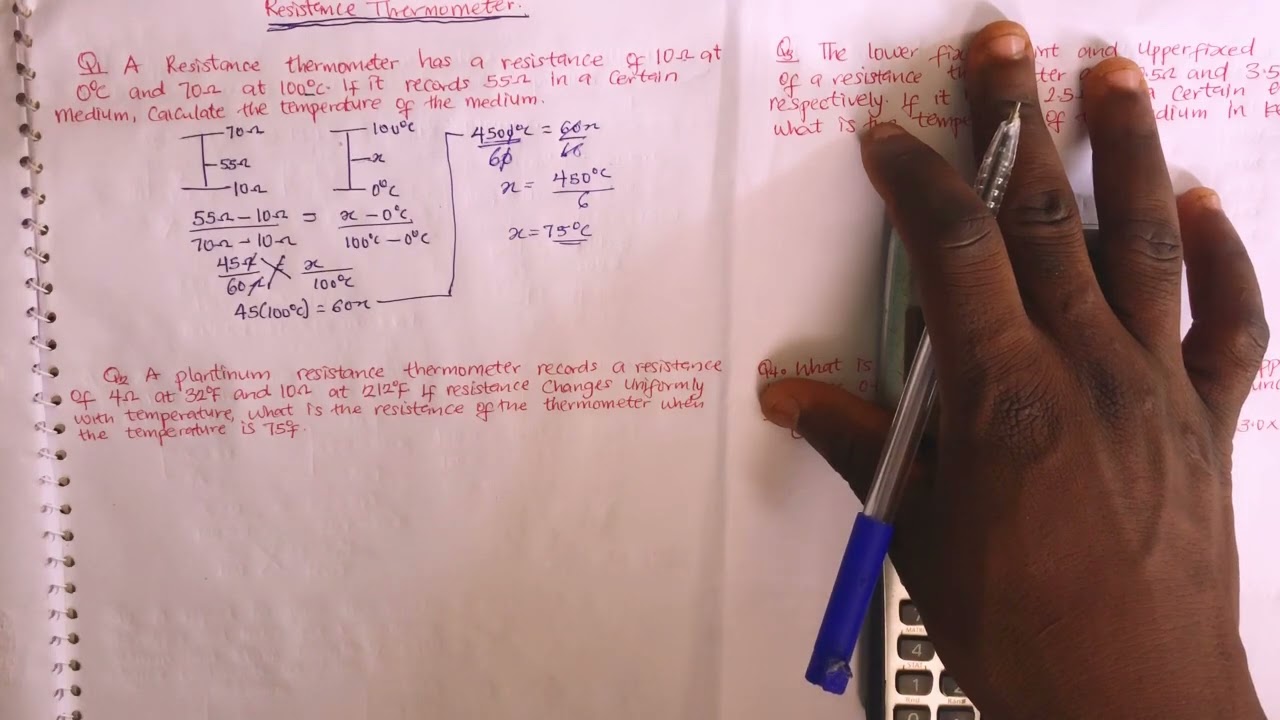 Resistance Thermometer.
Q1 A Resistance thermometer has a resistance of 10Ω at
0°C and 70Ω at 100°C. If it records 55Ω in a certain
medium, Calculate the temperature of the medium.
70Ω
55Ω
10Ω
100°C
x
0°C
55Ω - 10Ω = x - 0°C
70Ω - 10Ω 100°C - 0°C
45Ω x
60Ω 100°C
45(100°C) = 60x
4500°C = 60x
60 60
x = 450°C
6
x = 75°C
Q2 A plantinum resistance thermometer records a resistance
of 4Ω at 32°F and 10Ω at 212°F If resistance Changes Uniformly
with temperature, what is the resistance of the thermometer when
the temperature is 75°F.
Q3 The lower and Upper fixed
of a resistance 5Ω and 3.5
respectively. If it 2.5 a certain
what is the of
Q4. What is
3.0x
4
1